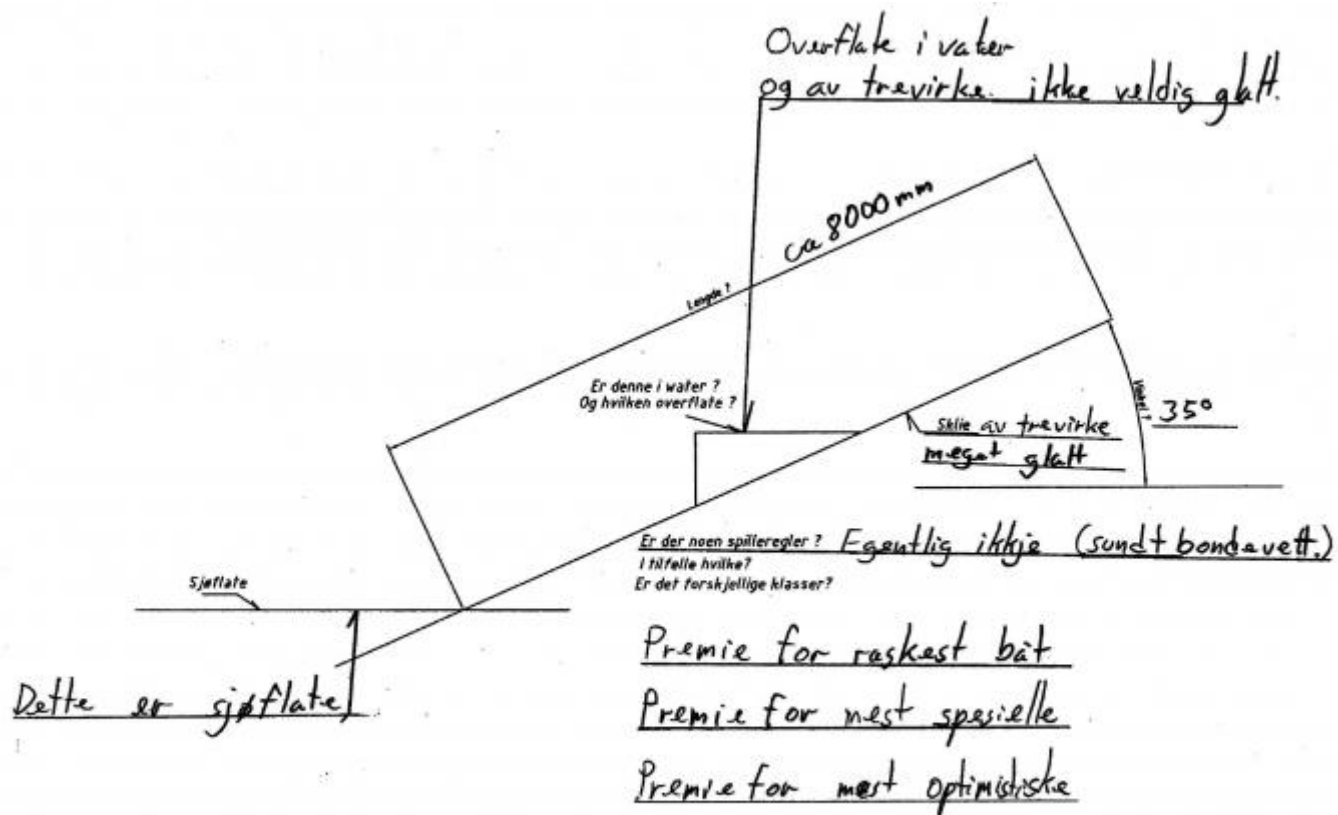 Overflate i vater
og av trevirke. ikke veldig glatt.
ca 8000 mm
Lengde ?
Er denne i water ?
Og hvilken overflate ?
Vinkel ?
35°
Sklie av trevirke
meget glatt
Er der noen spilleregler ? Egentlig ikkje (sundt bondevett.)
I tilfelle hvilke?
Er det forskjellige klasser?
Sjøflate
Premie for raskest båt
Dette er sjøflate
Premie for mest spesielle
Premie for mest optimistiske